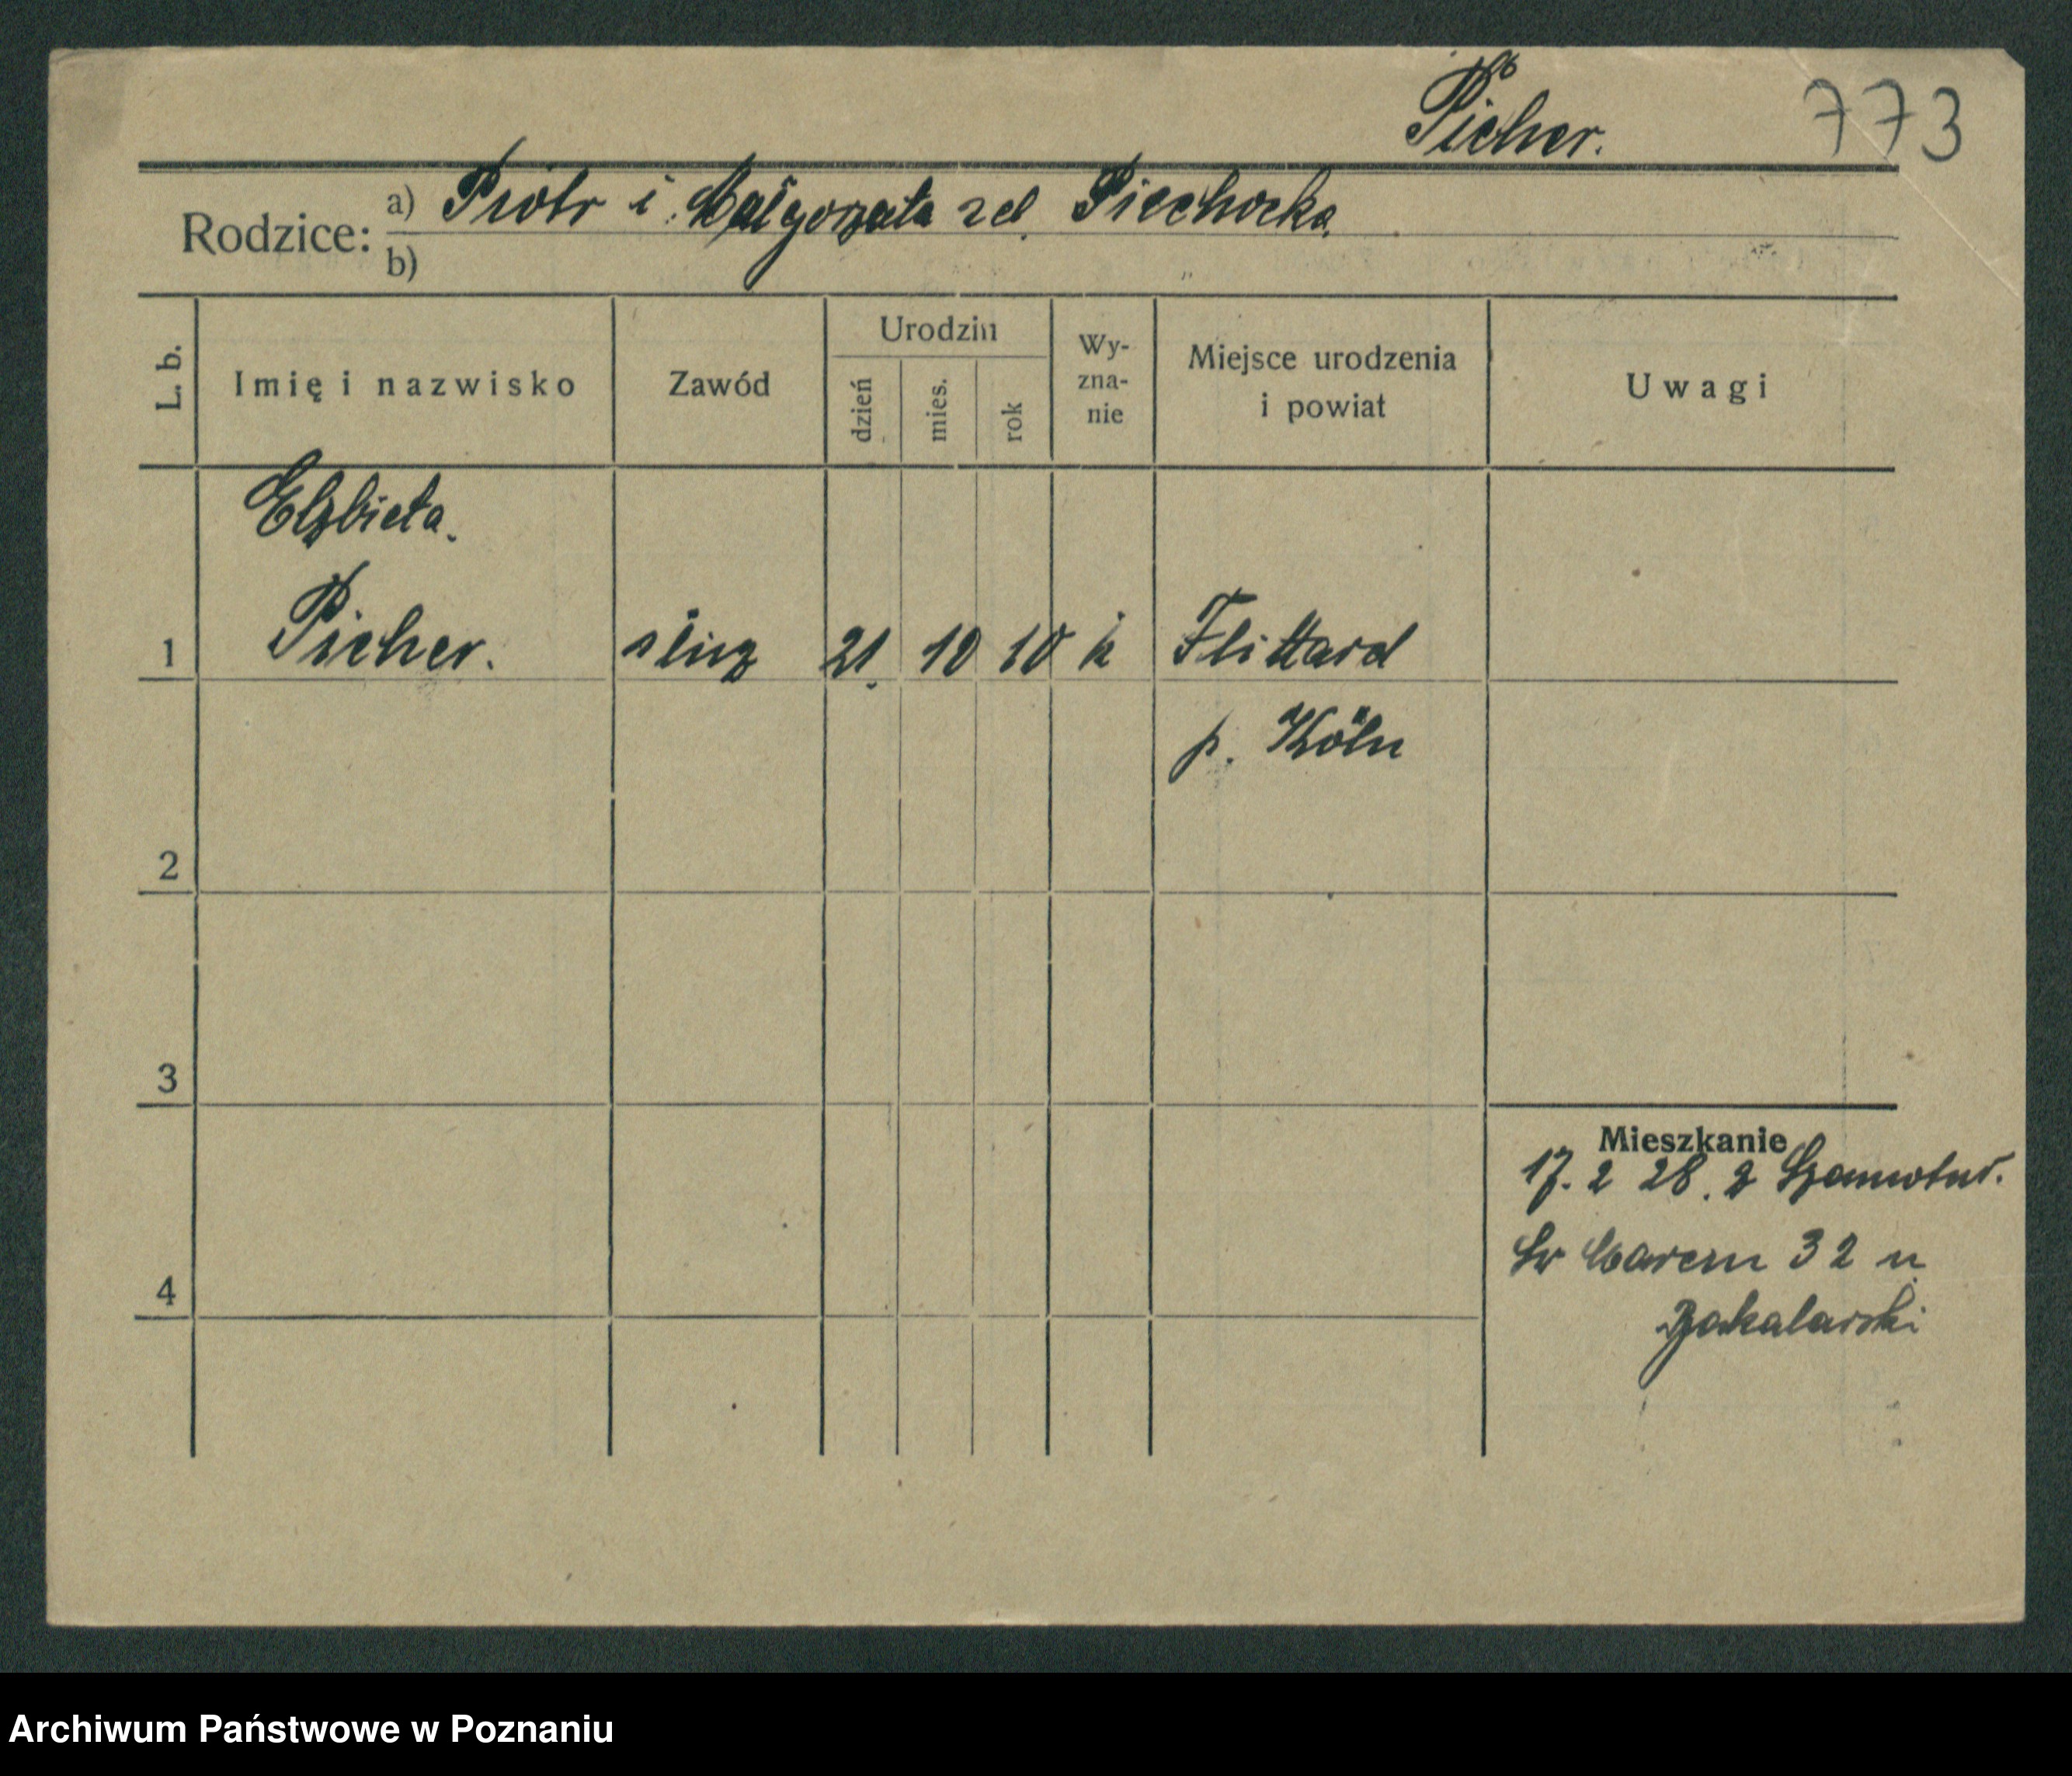 Picher.
773
Rodzice: a) Piotr i Małgorzata zd. Piechocka.
b)
L. b. Imię i nazwisko Zawód Urodzin dzień mies. rok Wy-zna-nie Miejsce urodzenia i powiat Uwagi
Elżbieta.
1 Picher. służ 21 10 10 k Flittard
p. Köln
2
3
Mieszkanie
17. 2 28. z Szamotuł.
4 Św Marcin 32 u
Bakalarski
Archiwum Państwowe w Poznaniu